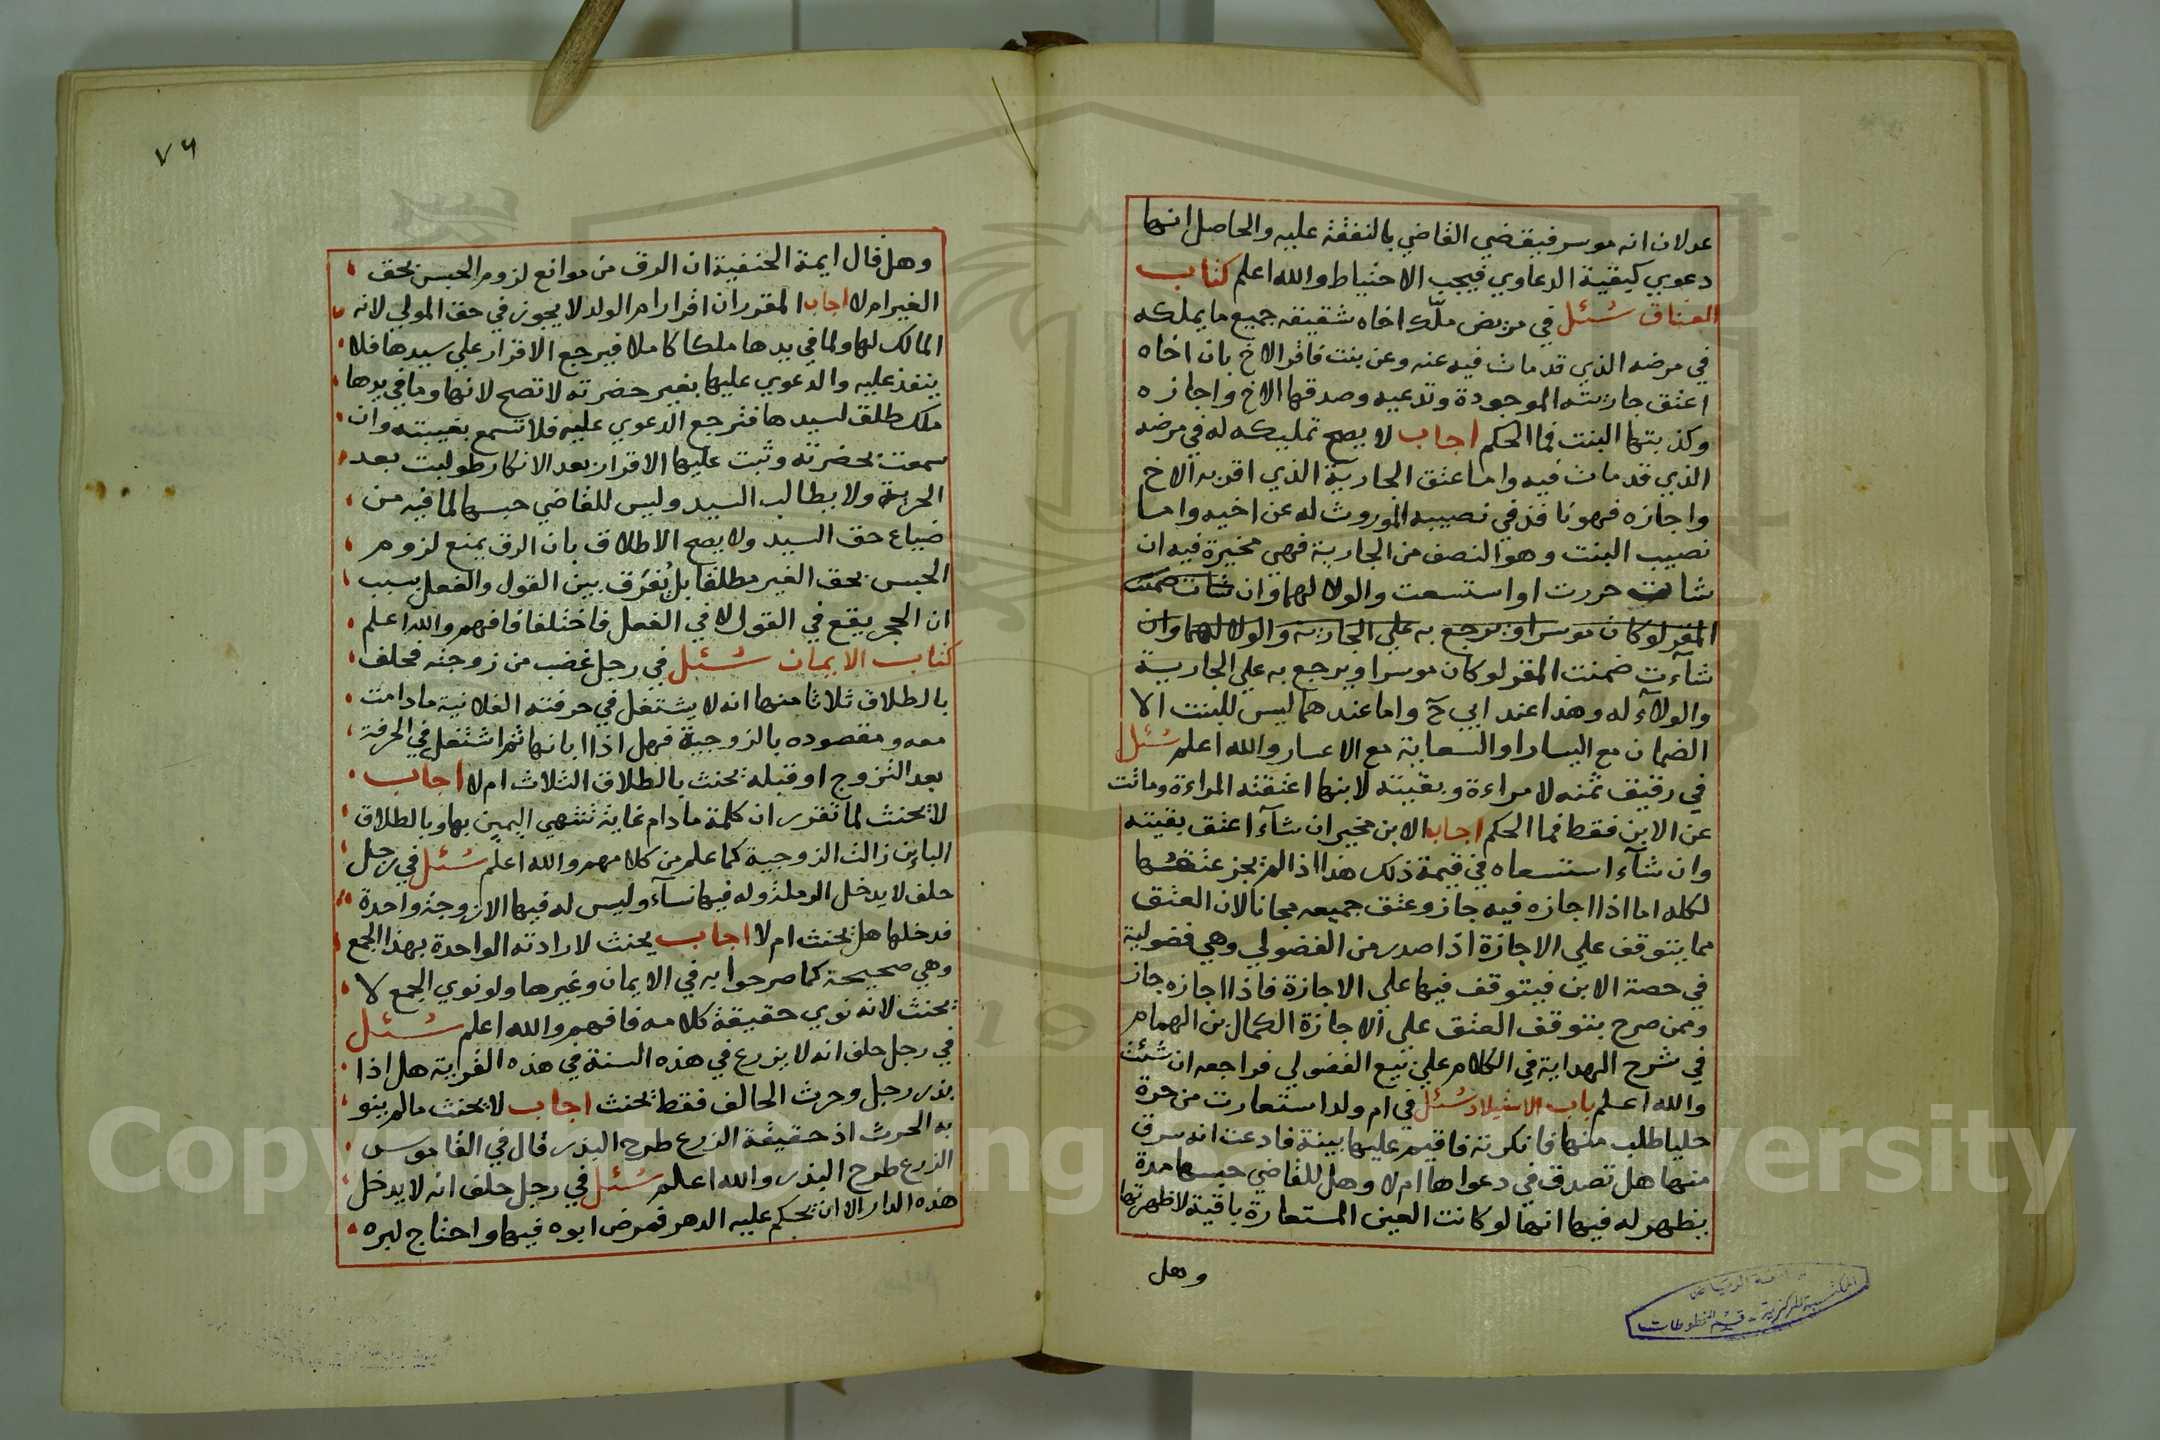 عدلان انه موسر فيقضي القاضي بالنفقة عليه والحاصل انها
دعوي كبقية الدعاوي فيجب الاحتياط والله اعلم كتاب
العتاق سُئل في مريض ملّك اخاه شقيقه جميع ما يملكه
في مرضه الذي قد مات فيه عنه وعن بنت فاقر الاخ بان اخاه
اعتق جاريته الموجودة وتدعيه وصدقها الاخ واجازه
وكذبتها البنت فما الحكم اجاب لا يصح تمليكه له في مرضه
الذي قد مات فيه واما عتق الجارية الذي اقر به الاخ
واجازه فهو نافذ في نصيبه الموروث له عن اخيه واما
نصيب البنت وهو النصف من الجارية فهي مخيرة فيه ان
شات حررت او استسعت والولا لهما وان شات ضمنت
المقر لو كان موسرا ويرجع به علي الجارية والولا لهما وان
شآءت ضمنت المقر لو كان موسرا ويرجع به علي الجارية
والولآء له وهذا عند ابي ح واما عندهما ليس للبنت الا
الضمان مع اليسار او السعاية مع الاعسار والله اعلم سُئل
في رقيق ثمنه لامراءة وبقيته لابنها اعتقته المراءة وماتت
عن الابن فقط فما الحكم اجاب الابن مخير ان شآء اعتق بقيته
وان شآء استسعاه في قيمة ذلك هذا اذا لم يجز عتقها
لكله اما اذا اجازه فيه جاز وعتق جميعه مجانا لان العتق
مما يتوقف علي الاجازة اذا صدر من الفضولي وهي فضولية
في حصة الابن فيتوقف فيها علي الاجازة فاذا اجازه جاز
وممن صرح بتوقف العتق علي الاجازة الكمال بن الهمام
في شرح الهداية في الكلام علي بيع الفضولي فراجعه ان شئت
والله اعلم باب الاستيلاد سُئل في ام ولد استعارت من حرة
حليا طلب منها فانكرته فاقيم عليها بينة فادعت انه سرق
منها هل تصدق في دعواها ام لا وهل للقاضي حبسها مدة
يظهر له فيها انها لو كانت العين المستعارة باقية لاظهرتها
وهل
المكتبة المركزية - قسم المخطوطات
٧٦
وهل قال ايمة الحنفية ان الرق من موانع لزوم الحبس بحق
الغير ام لا اجاب المقرر ان اقرار ام الولد لا يجوز في حق المولي لانه
المالك لها ولما في يدها ملكا كاملا فيرجع الاقرار علي سيدها فلا
ينفذ عليه والدعوي عليها بغير حضرته لا تصح لانها وما في يدها
ملك طلق لسيدها فترجع الدعوي عليه فلا تسمع بغيبته وان
سمعت بحضرته وثبت عليها الاقرار بعد الانكار طولبت بعد
الحرية ولا يطالب السيد وليس للقاضي حبسها لما فيه من
ضياع حق السيد ولا يصح الاطلاق بان الرق يمنع لزوم
الحبس بحق الغير مطلقا بل يُفرَق بين القول والفعل بسبب
ان الحجر يقع في القول لا في الفعل فاختلفا فافهم والله اعلم
كتاب الايمان سُئل في رجل غضب من زوجته فحلف
بالطلاق ثلاثا منها انه لا يشتغل في حرفته الفلانية ما دامت
معه ومقصوده بالزوجية فهل اذا ابانها ثم اشتغل في الحرفة
بعد التزوج او قبله يحنث بالطلاق الثلاث ام لا اجاب
لا يحنث لما تقرر ان كلمة ما دام غاية تنتهي اليمين بها وبالطلاق
الباين زالت الزوجية كما علم من كلامهم والله اعلم سُئل في رجل
حلف لا يدخل الرملة وله فيها نسآء وليس له فيها الا زوجة واحدة
فدخلها هل يحنث ام لا اجاب يحنث لارادته الواحدة بهذا الجمع
وهي صحيحة كما صرحوا به في الايمان وغيرها ولو نوي الجمع لا
يحنث لانه نوي حقيقة كلامه فافهم والله اعلم سُئل
في رجل حلف انه لا يزرع في هذه السنة في هذه القرية هل اذا
بذر رجل وحرث الحالف فقط يحنث اجاب لا يحنث ما لم ينو
به الحرث اذ حقيقة الزرع طرح البذر قال في القاموس
الزرع طرح البذر والله اعلم سُئل في رجل حلف انه لا يدخل
هذه الدار الا ان يحكم عليه الدهر فمرض ابوه فيها واحتاج لبره
Copyright © King Saud University